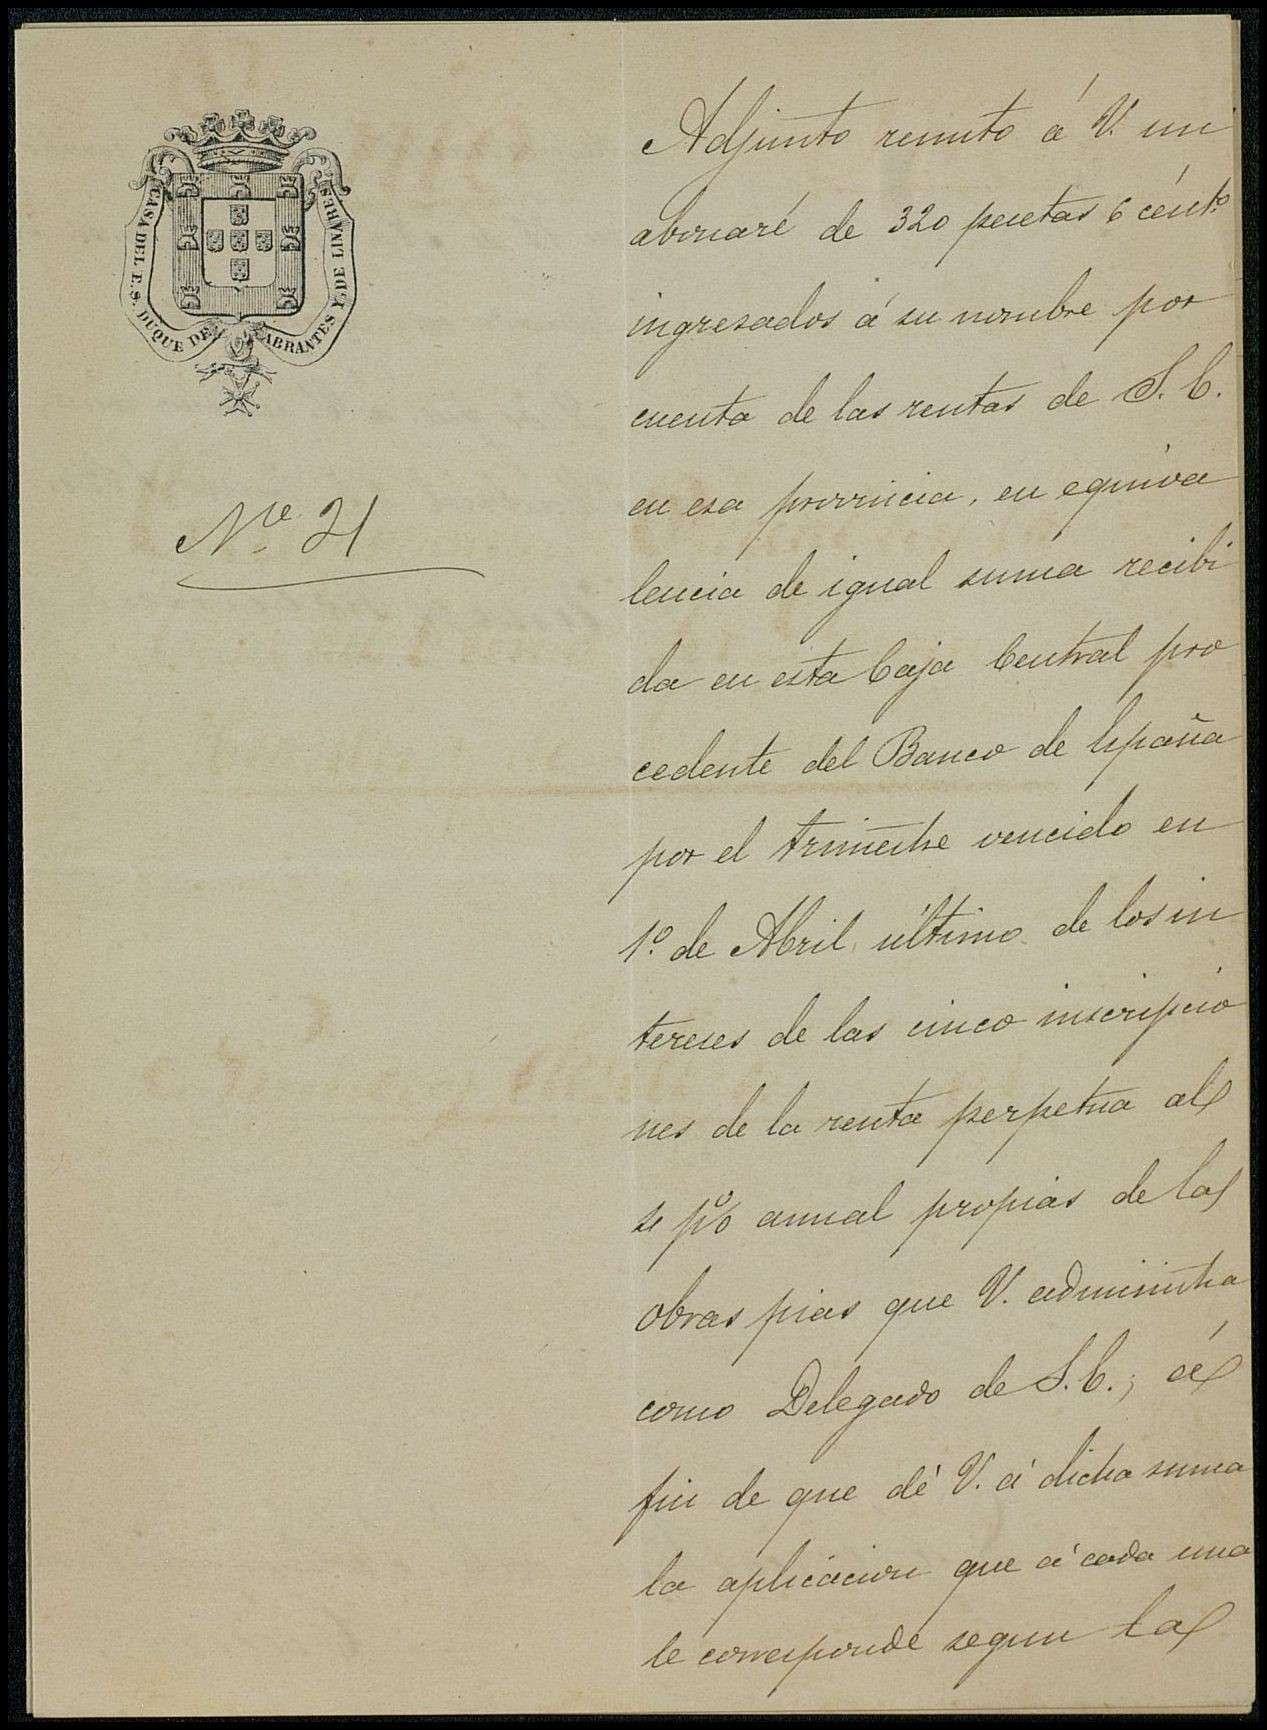 CASA DEL E. S. DUQUE DE ABRANTES Y DE LINARES
Nº 21
Adjunto remito á V. un
abonaré de 320 pesetas 6 cént.s
ingresados á su nombre por
cuenta de las rentas de S. E.
en esa provincia, en equiva
lencia de igual suma recibi
da en esta Caja Central pro
cedente del Banco de España
por el trimestre vencido en
1º. de Abril último de los in
tereses de las cinco inscripcio
nes de la renta perpetua al
4 p% anual propias de las
obras pias que V. administra
como Delegado de S. E.; á
fin de que dé V. á dicha suma
la aplicacion que á cada una
le corresponde segun las